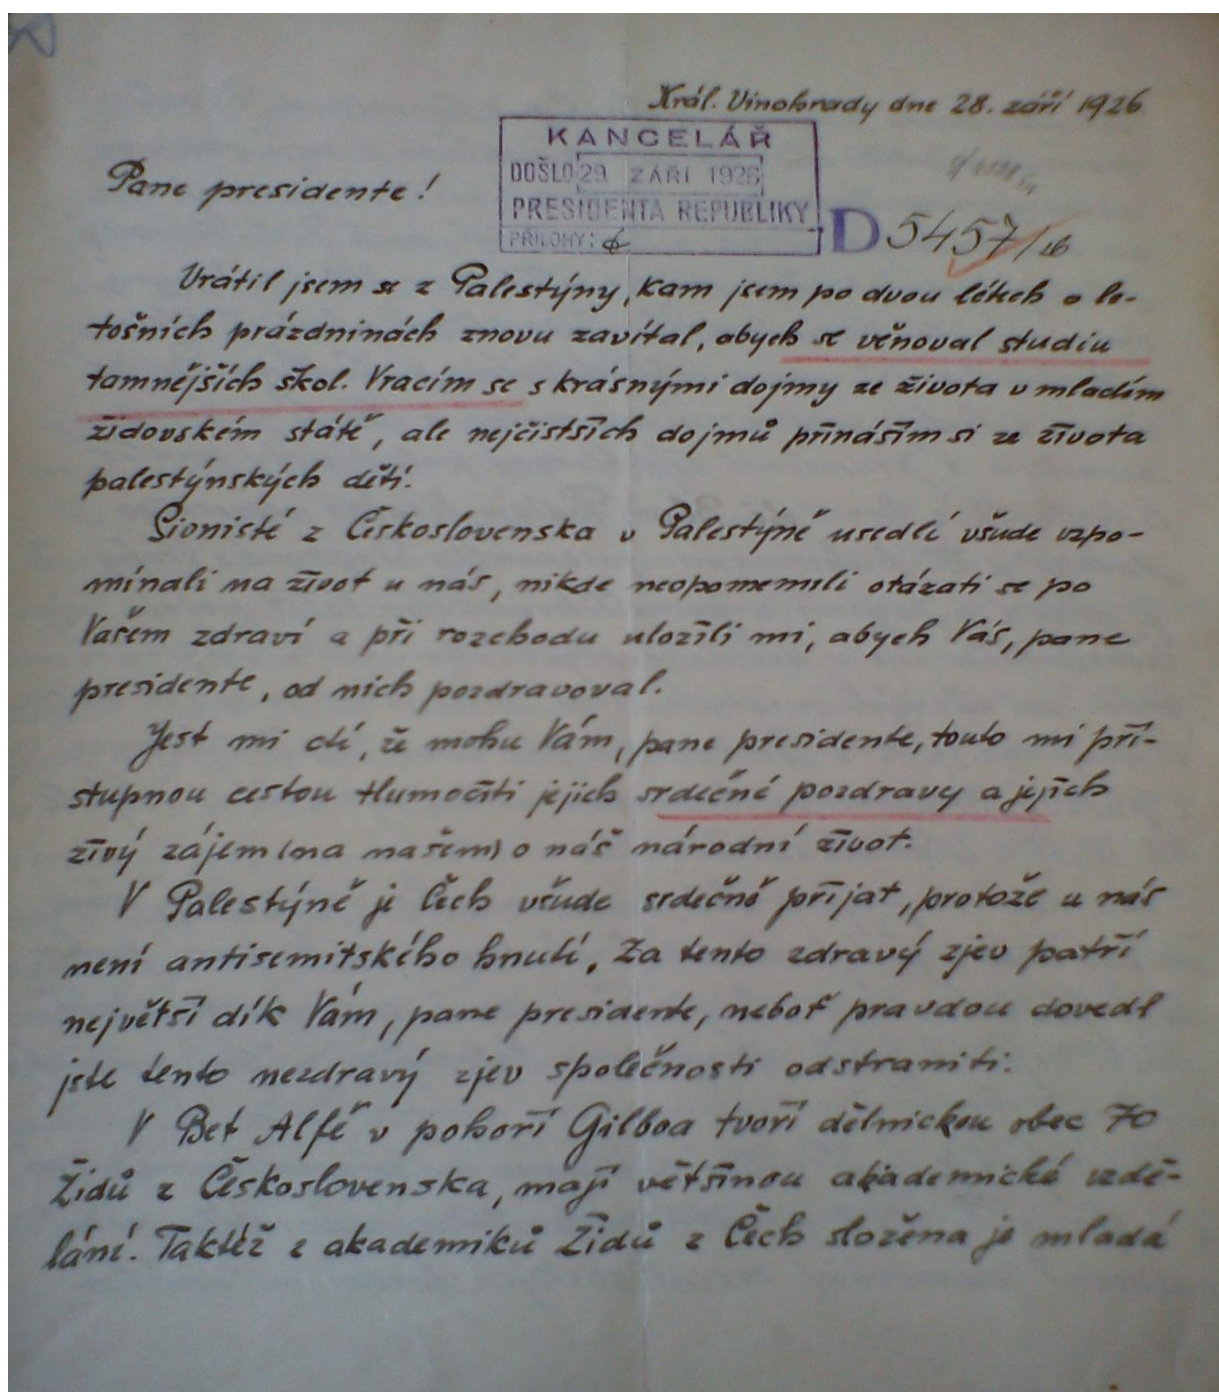 Král. Vinohrady dne 28. září 1926
KANCELÁŘ
DOŠLO 29. ZÁŘÍ 1926
PRESIDENTA REPUBLIKY
PŘÍLOHY:
D 5457/26
Pane presidente!
Vrátil jsem se z Palestýny, kam jsem po dvou létech o le-
tošních prázdninách znovu zavítal, abych se věnoval studiu
tamnějších škol. Vracím se s krásnými dojmy ze života v mladém
židovském státě, ale nejčistších dojmů přináším si ze života
palestýnských dětí.
Sionisté z Československa v Palestýně usedlí všude vzpo-
mínali na život u nás, nikde neopomenuli otázati se po
Vašem zdraví a při rozchodu uložili mi, abych Vás, pane
presidente, od nich pozdravoval.
Jest mi ctí, že mohu Vám, pane presidente, touto mi pří-
stupnou cestou tlumočiti jejich srdečné pozdravy a jejich
živý zájem (na našem) o náš národní život.
V Palestýně je Čech všude srdečně přijat, protože u nás
není antisemitského hnutí. Za tento zdravý zjev patří
největší dík Vám, pane presidente, neboť pravdou dovedl
jste tento nezdravý zjev společnosti odstraniti:
V Bet Alfě v pohoří Gilboa tvoří dělnickou obec 70
Židů z Československa, mají většinou akademické vzdě-
lání. Taktéž z akademiků Židů z Čech složena je mladá